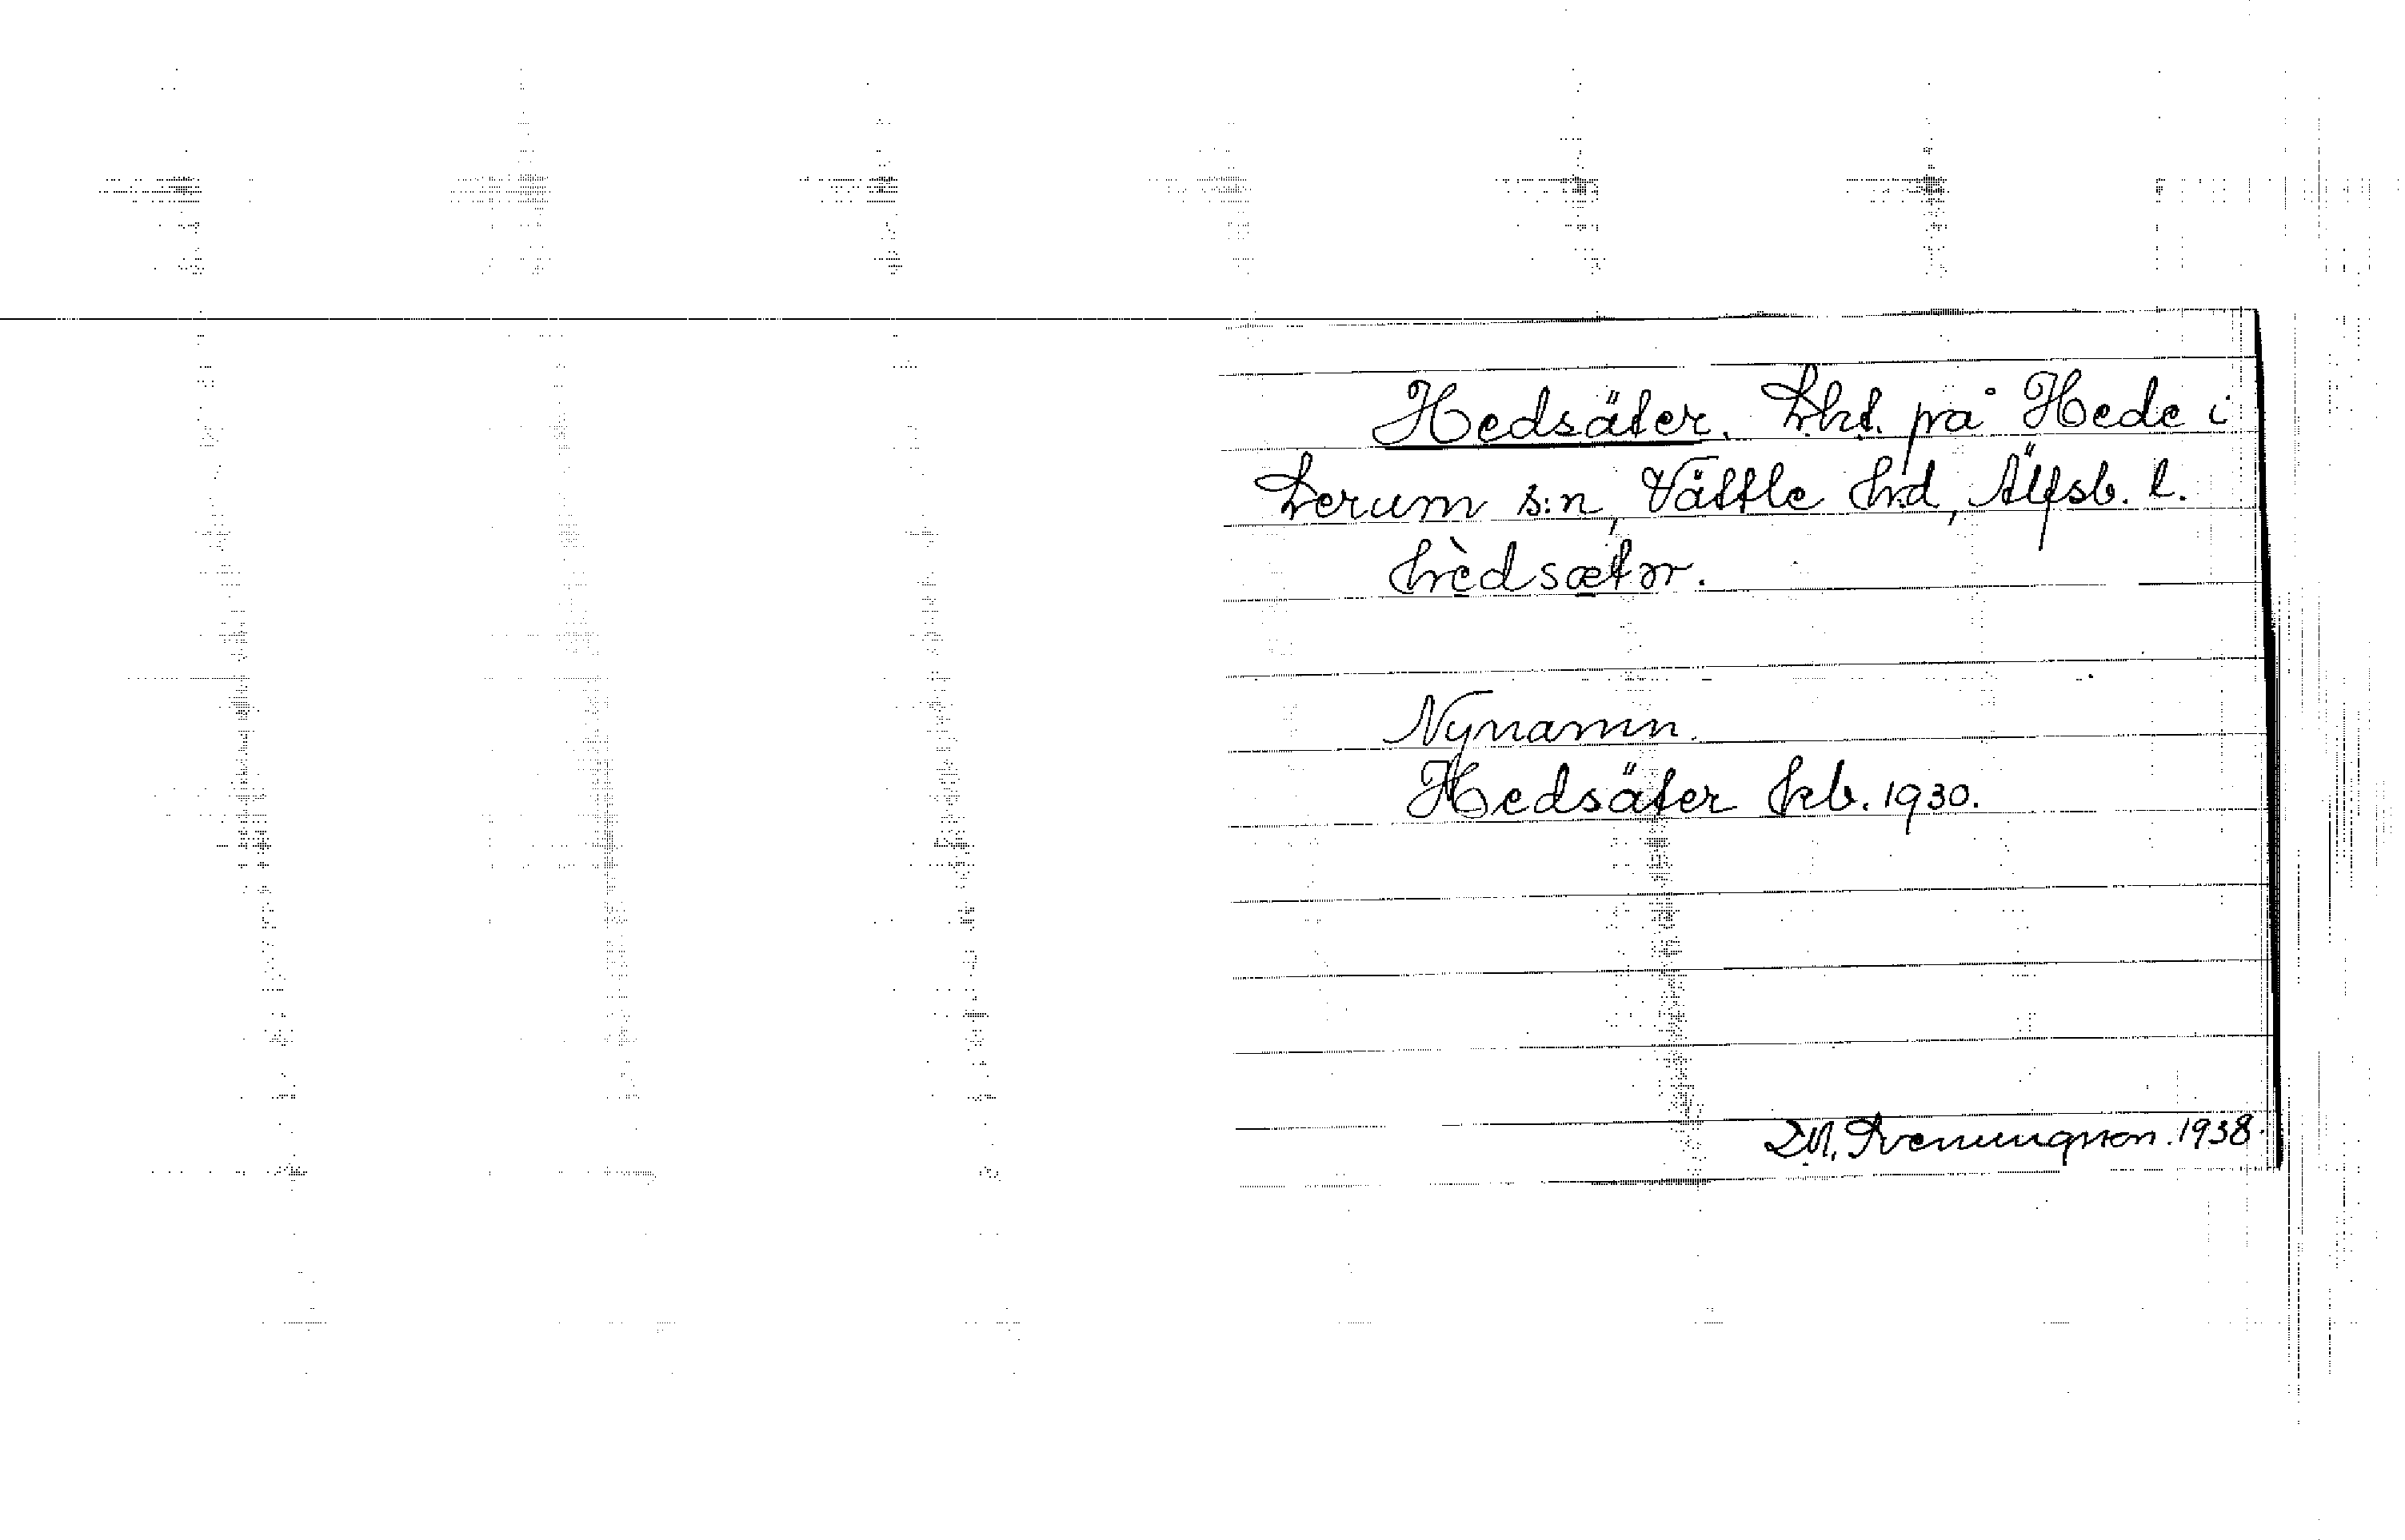 Hedsäter. Lht. på Hede i
Lerum s:n, Vättle hd, Älfsb. l.
hèdsætər.
Nynamn.
Hedsäter kb. 1930.
Sveningson. 1938.